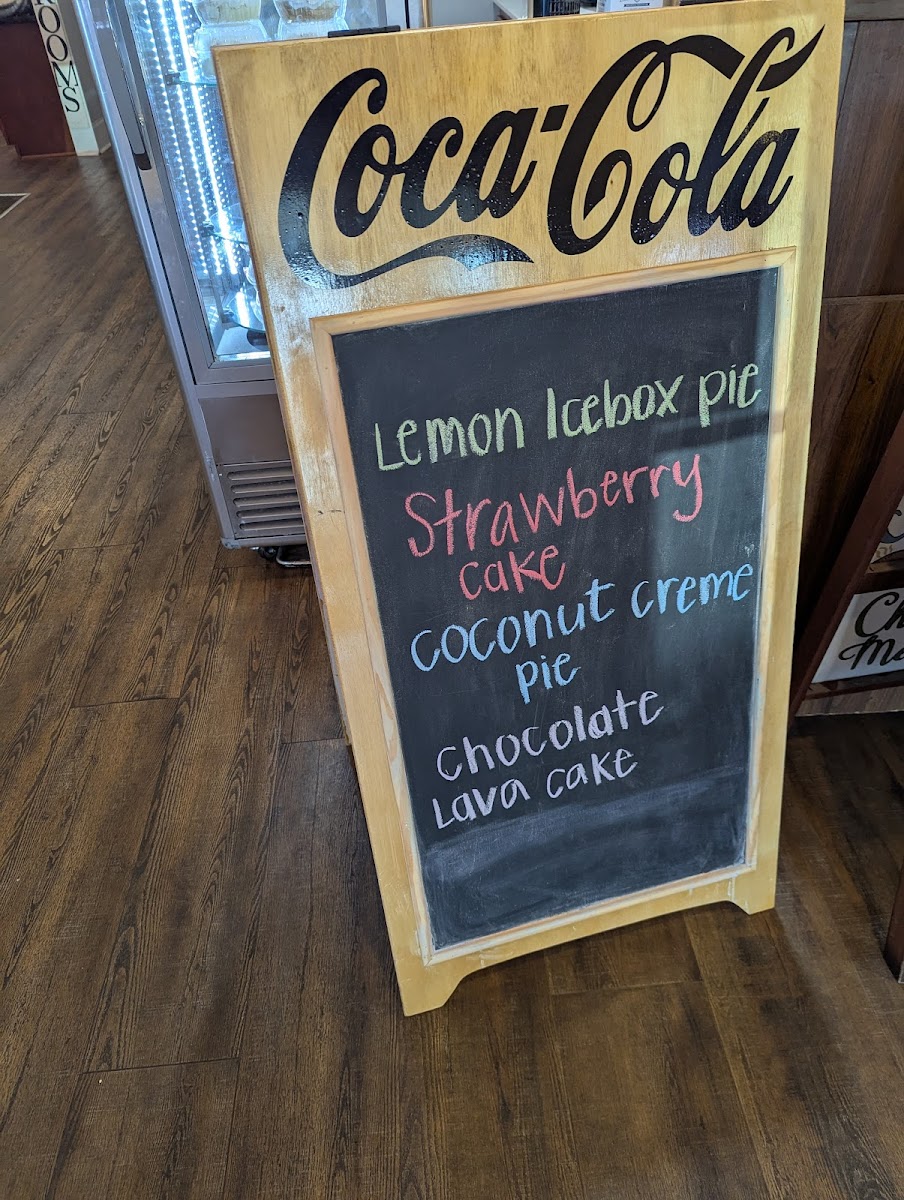 OOMS
Coca-Cola
Lemon Icebox pie
Strawberry
cake
coconut creme
pie
chocolate
Lava cake
Ch
Me